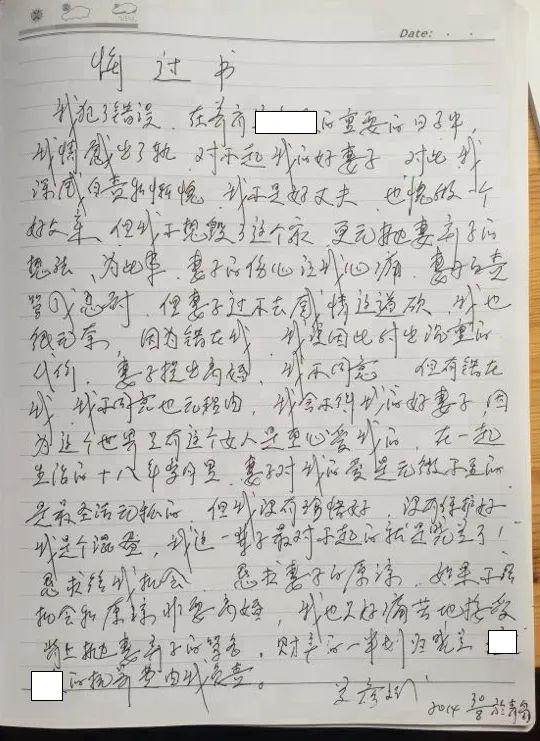 Date: . .
悔过书
我犯了错误，在养育的重要的日子中，
我情感出了轨，对不起我的好妻子，对此我
深感自责和惭愧，我不是好丈夫，也愧做一个
好父亲，但我不想毁了这个家，更无抛妻弃子的
想法，为此事，妻子的伤心让我心痛，妻子的责
骂我忍耐，但妻子过不去感情这道砍，我也
很无奈，因为错在我，我要因此付出沉重的
代价，妻子提出离婚，我不同意，但有错在
我，我不同意也无理由，我舍不得我的好妻子，因
为这个世界只有这个女人是真心爱我的，在一起
生活的十八年岁月里，妻子对我的爱是无微不至的
是最圣洁无私的，但我没有珍惜好，没有保护好
我是个混蛋，我这一辈子最对不起的就是兰了！
恳求给我机会，恳求妻子的原谅，如果不给
机会和原谅非要离婚，我也只好痛苦地接受
背上抛妻弃子的骂名，财产的一半划归兰
的抚养费由我负责。
2014 30/8 于青岛